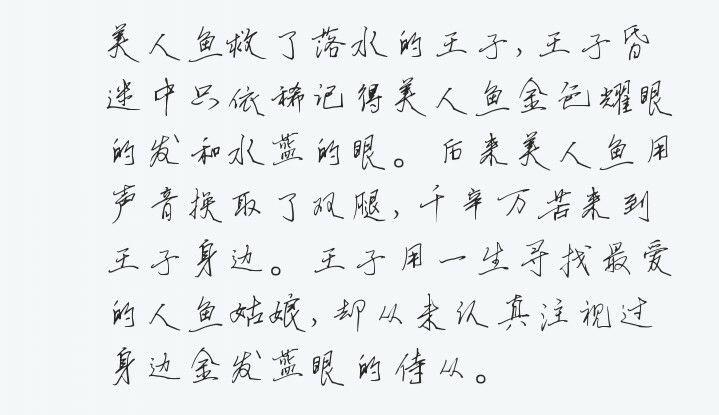 美人鱼救了落水的王子,王子昏
迷中只依稀记得美人鱼金色耀眼
的发和水蓝的眼。后来美人鱼用
声音换取了双腿,千辛万苦来到
王子身边。王子用一生寻找最爱
的人鱼姑娘,却从未认真注视过
身边金发蓝眼的侍从。